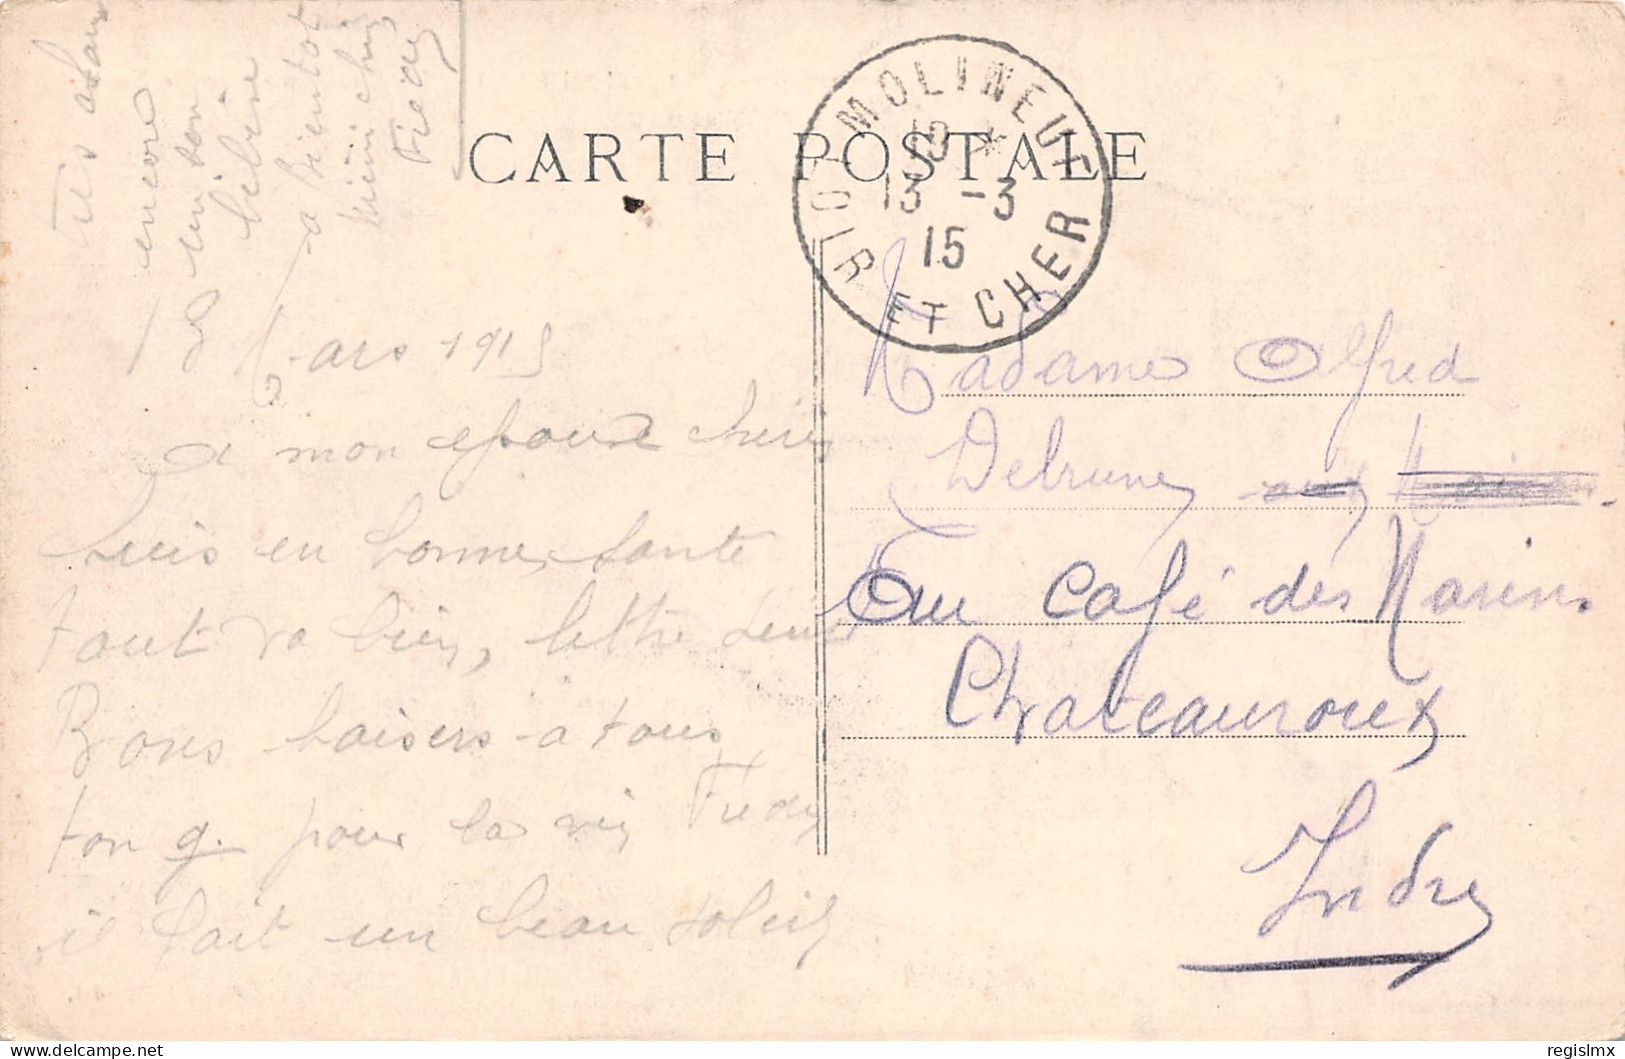 CARTE POSTALE
MOLINEUF
19 *
13 - 3
15
LOIR ET CHER
encore
un bon
a bientot
Fredy
12 Mars 1915
a mon epouse cherie
suis en bonne sante
tout va bien, lettre
Bons baisers a tous
ton g. pour la vie Fredy
il fait un beau soleil
Madame Alfred
Debruney
Au café des Marins.
Chateauroux
Indre
regislmx